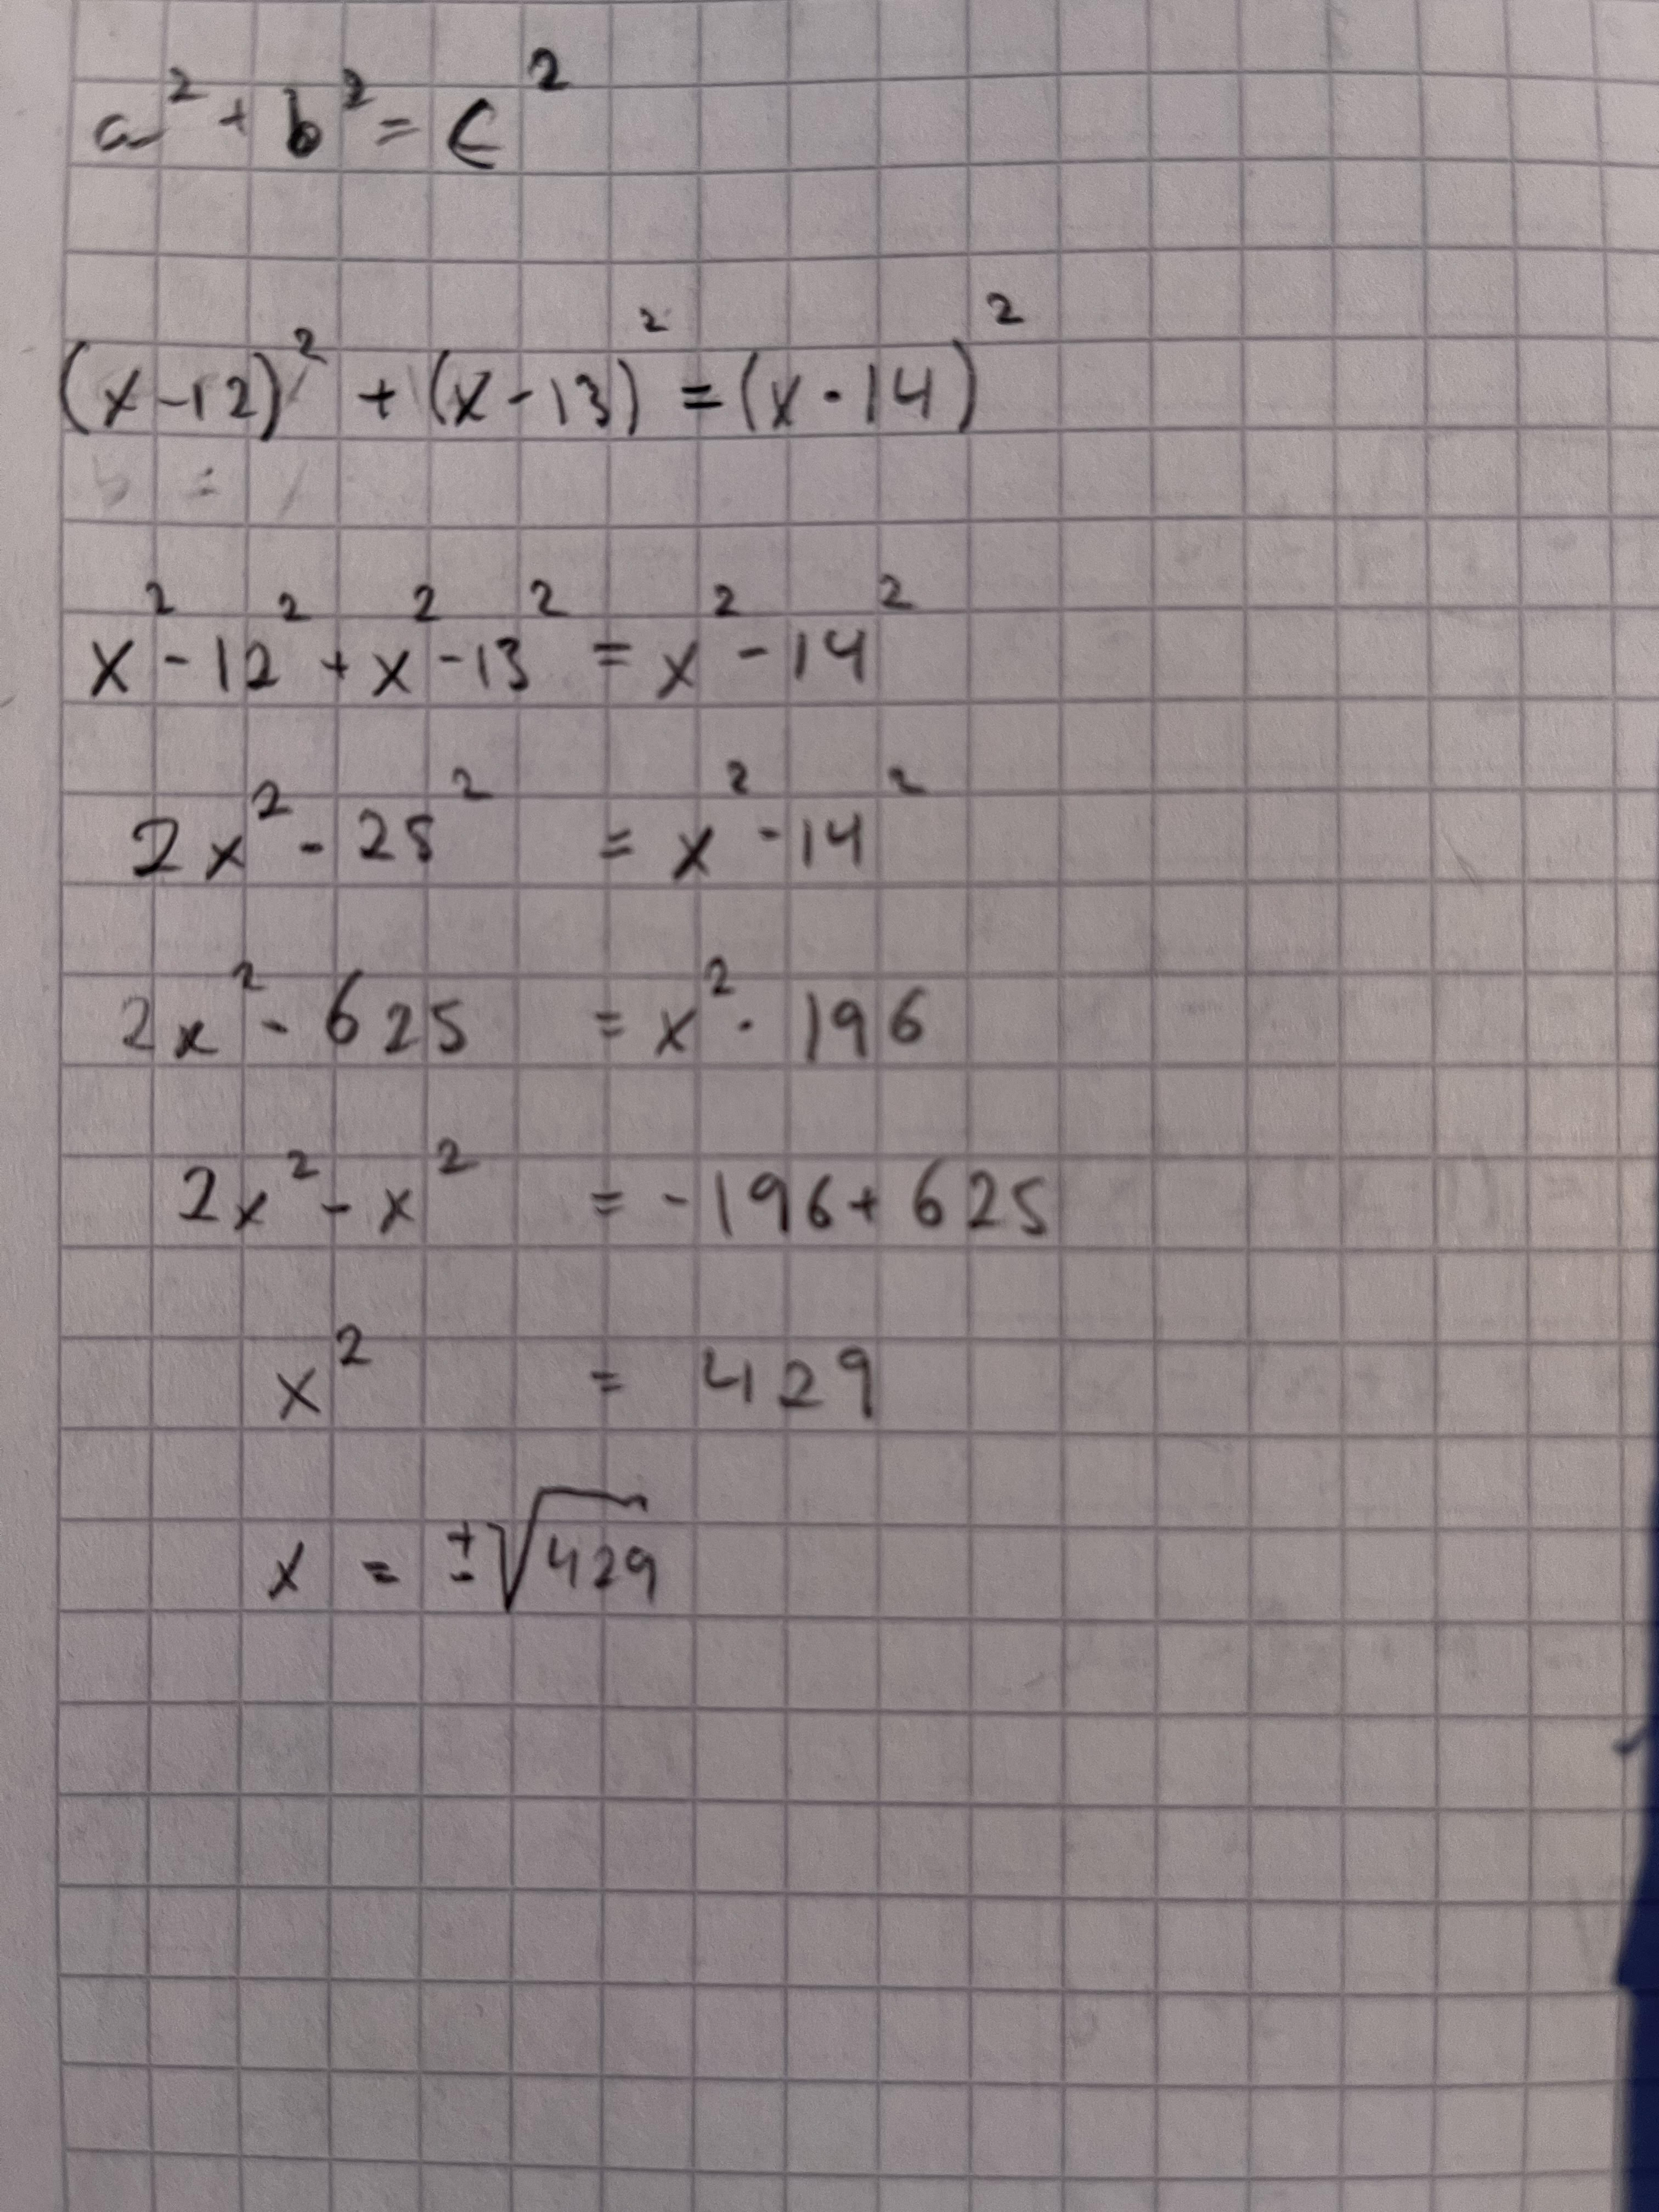 a² + b² = c²
(x-12)² + (x-13)² = (x-14)²
x² - 12² + x² - 13² = x² - 14²
2x² - 25² = x² - 14²
2x² - 625 = x² - 196
2x² - x² = -196 + 625
x² = 429
x = ±√429